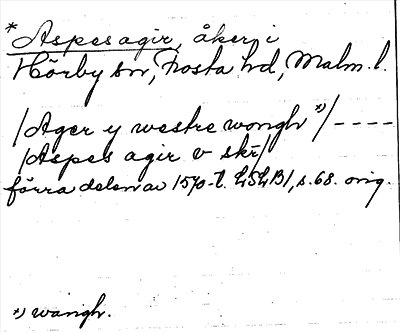 * Aspes agir, åker i
Hörby sn, Frosta hd, Malm. l.
/Ager y westre wongh *)/ ----
/Aspes agir v skr/
förra delen av 1570-t. LSLB1, s. 68. orig.
*) wangh.